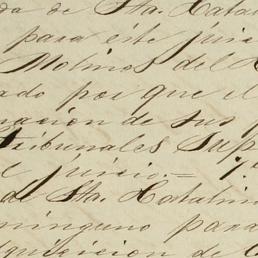 da de Sta. Catali
para este juic
Molinos del
ado por que el
nacion de sus
Tribunales Sup
l juicio.=
de Sta. Catalin
ninguno para
dquisicion de